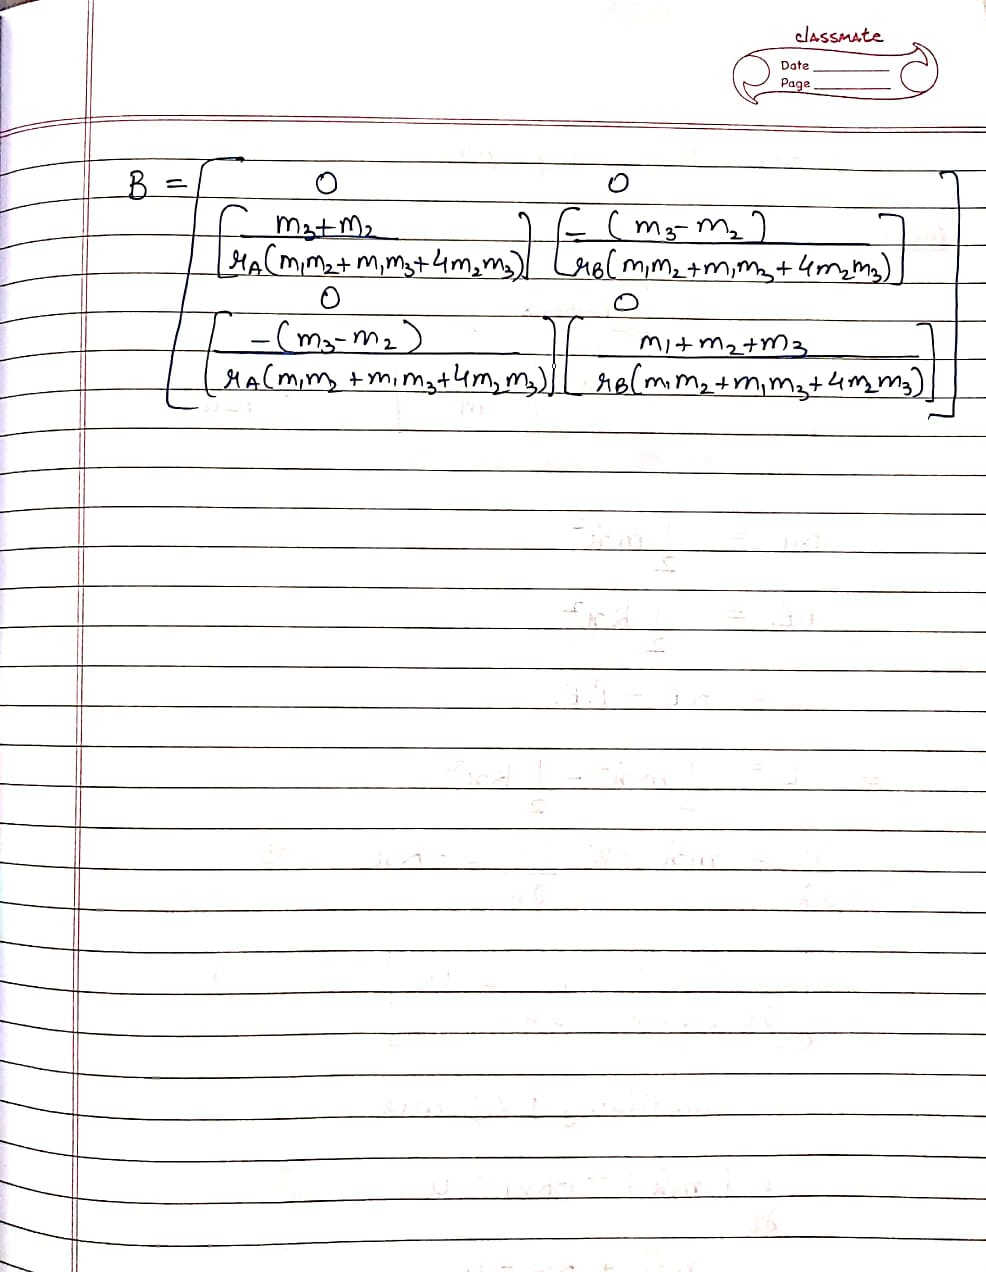 classmate
Date
Page
B =
0 0
[m3+m2 / rA(m1m2+m1m3+4m2m3)] [-(m3-m2) / rB(m1m2+m1m3+4m2m3)]
0 0
[-(m3-m2) / rA(m1m2+m1m3+4m2m3)] [m1+m2+m3 / rB(m1m2+m1m3+4m2m3)]